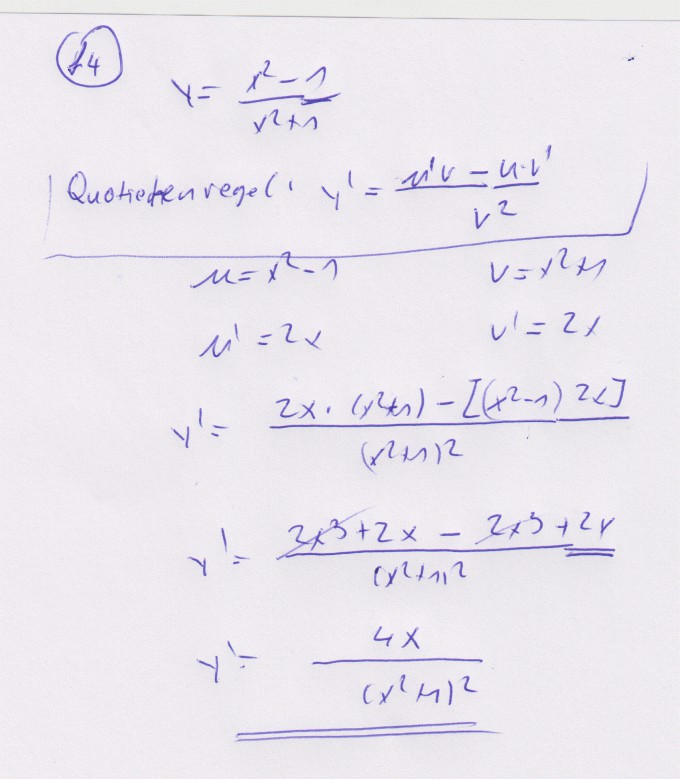 14
y = (x² - 1)/(x² + 1)
Quotientenregel: y' = (u'v - u·v')/v²
u = x² - 1 v = x² + 1
u' = 2x v' = 2x
y' = (2x · (x²+1) - [(x²-1) 2x])/(x²+1)²
y' = (2x³ + 2x - 2x³ + 2x)/(x²+1)²
y' = 4x/(x²+1)²